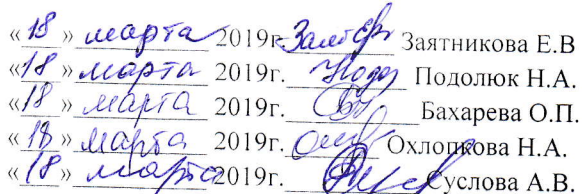 «18» марта 2019г. Заятникова Е.В
«18» марта 2019г. Подолюк Н.А.
«18» марта 2019г. Бахарева О.П.
«18» марта 2019г. Охлопкова Н.А.
«18» марта 2019г. Суслова А.В.